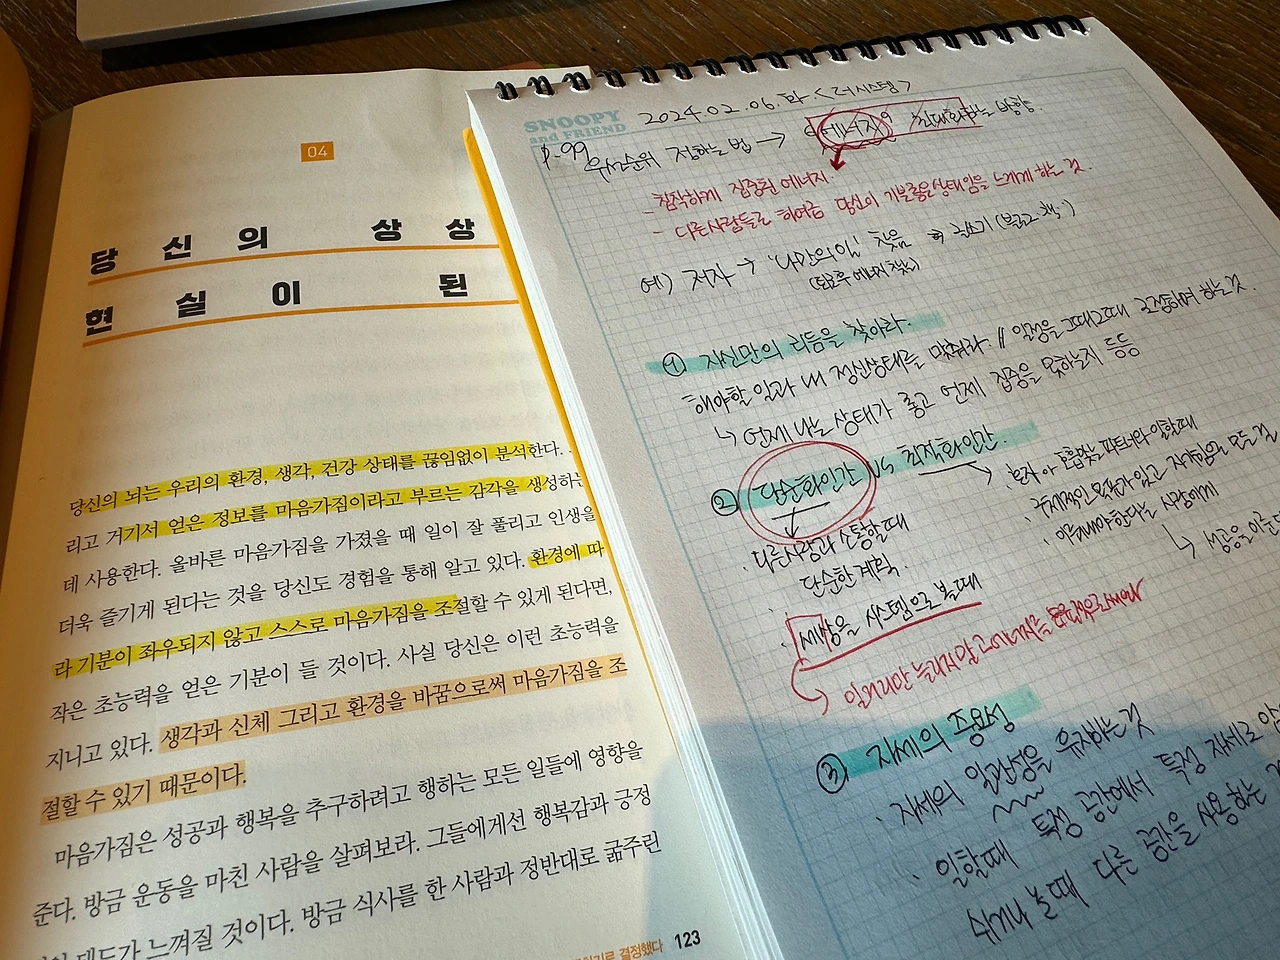 04
당신의 상상
현실이 된
당신의 뇌는 우리의 환경, 생각, 건강 상태를 끊임없이 분석한다.
리고 거기서 얻은 정보를 마음가짐이라고 부르는 감각을 생성하는
데 사용한다. 올바른 마음가짐을 가졌을 때 일이 잘 풀리고 인생을
더욱 즐기게 된다는 것을 당신도 경험을 통해 알고 있다. 환경에 따
라 기분이 좌우되지 않고 스스로 마음가짐을 조절할 수 있게 된다면,
작은 초능력을 얻은 기분이 들 것이다. 사실 당신은 이런 초능력을
지니고 있다. 생각과 신체 그리고 환경을 바꿈으로써 마음가짐을 조
절할 수 있기 때문이다.
마음가짐은 성공과 행복을 추구하려고 행하는 모든 일들에 영향을
준다. 방금 운동을 마친 사람을 살펴보라. 그들에게선 행복감과 긍정
태도가 느껴질 것이다. 방금 식사를 한 사람과 정반대로 굶주린
결정했다 123
SNOOPY
and FRIEND
2024.02.06.화.<더시스템>
p-99 우선순위 정하는 법 → "에너지" 최대화하는 방향.
- 침착하게 집중된 에너지
- 다른사람들로 하여금 당신이 기분좋은상태임을 느끼게 하는 것.
예) 저자 → '나만의 일' 찾음 ⇒ 글쓰기 (블로그, 책)
① 자신만의 리듬을 찾아라.
해야할 일과 내 정신상태를 맞춰라. // 일정을 그때그때 조정하며 하는것.
↳ 언제 나는 상태가 좋고 언제 집중을 못하는지 등등
② 단순화인간 vs 최적화인간
· 다른사람과 소통할때
· 단순한 계획.
· 세상을 시스템으로 볼때
혼자 or 호흡맞는 파트너와 일할때
· 이뤄내야한다는 사람에게
↳ 성공을
③ 자세의 중요성
· 자세의 일관성을 유지하는 것
· 일할때 특정 공간에서 특정 자세로
쉬거나 놀때 다른 공간을 사용하는